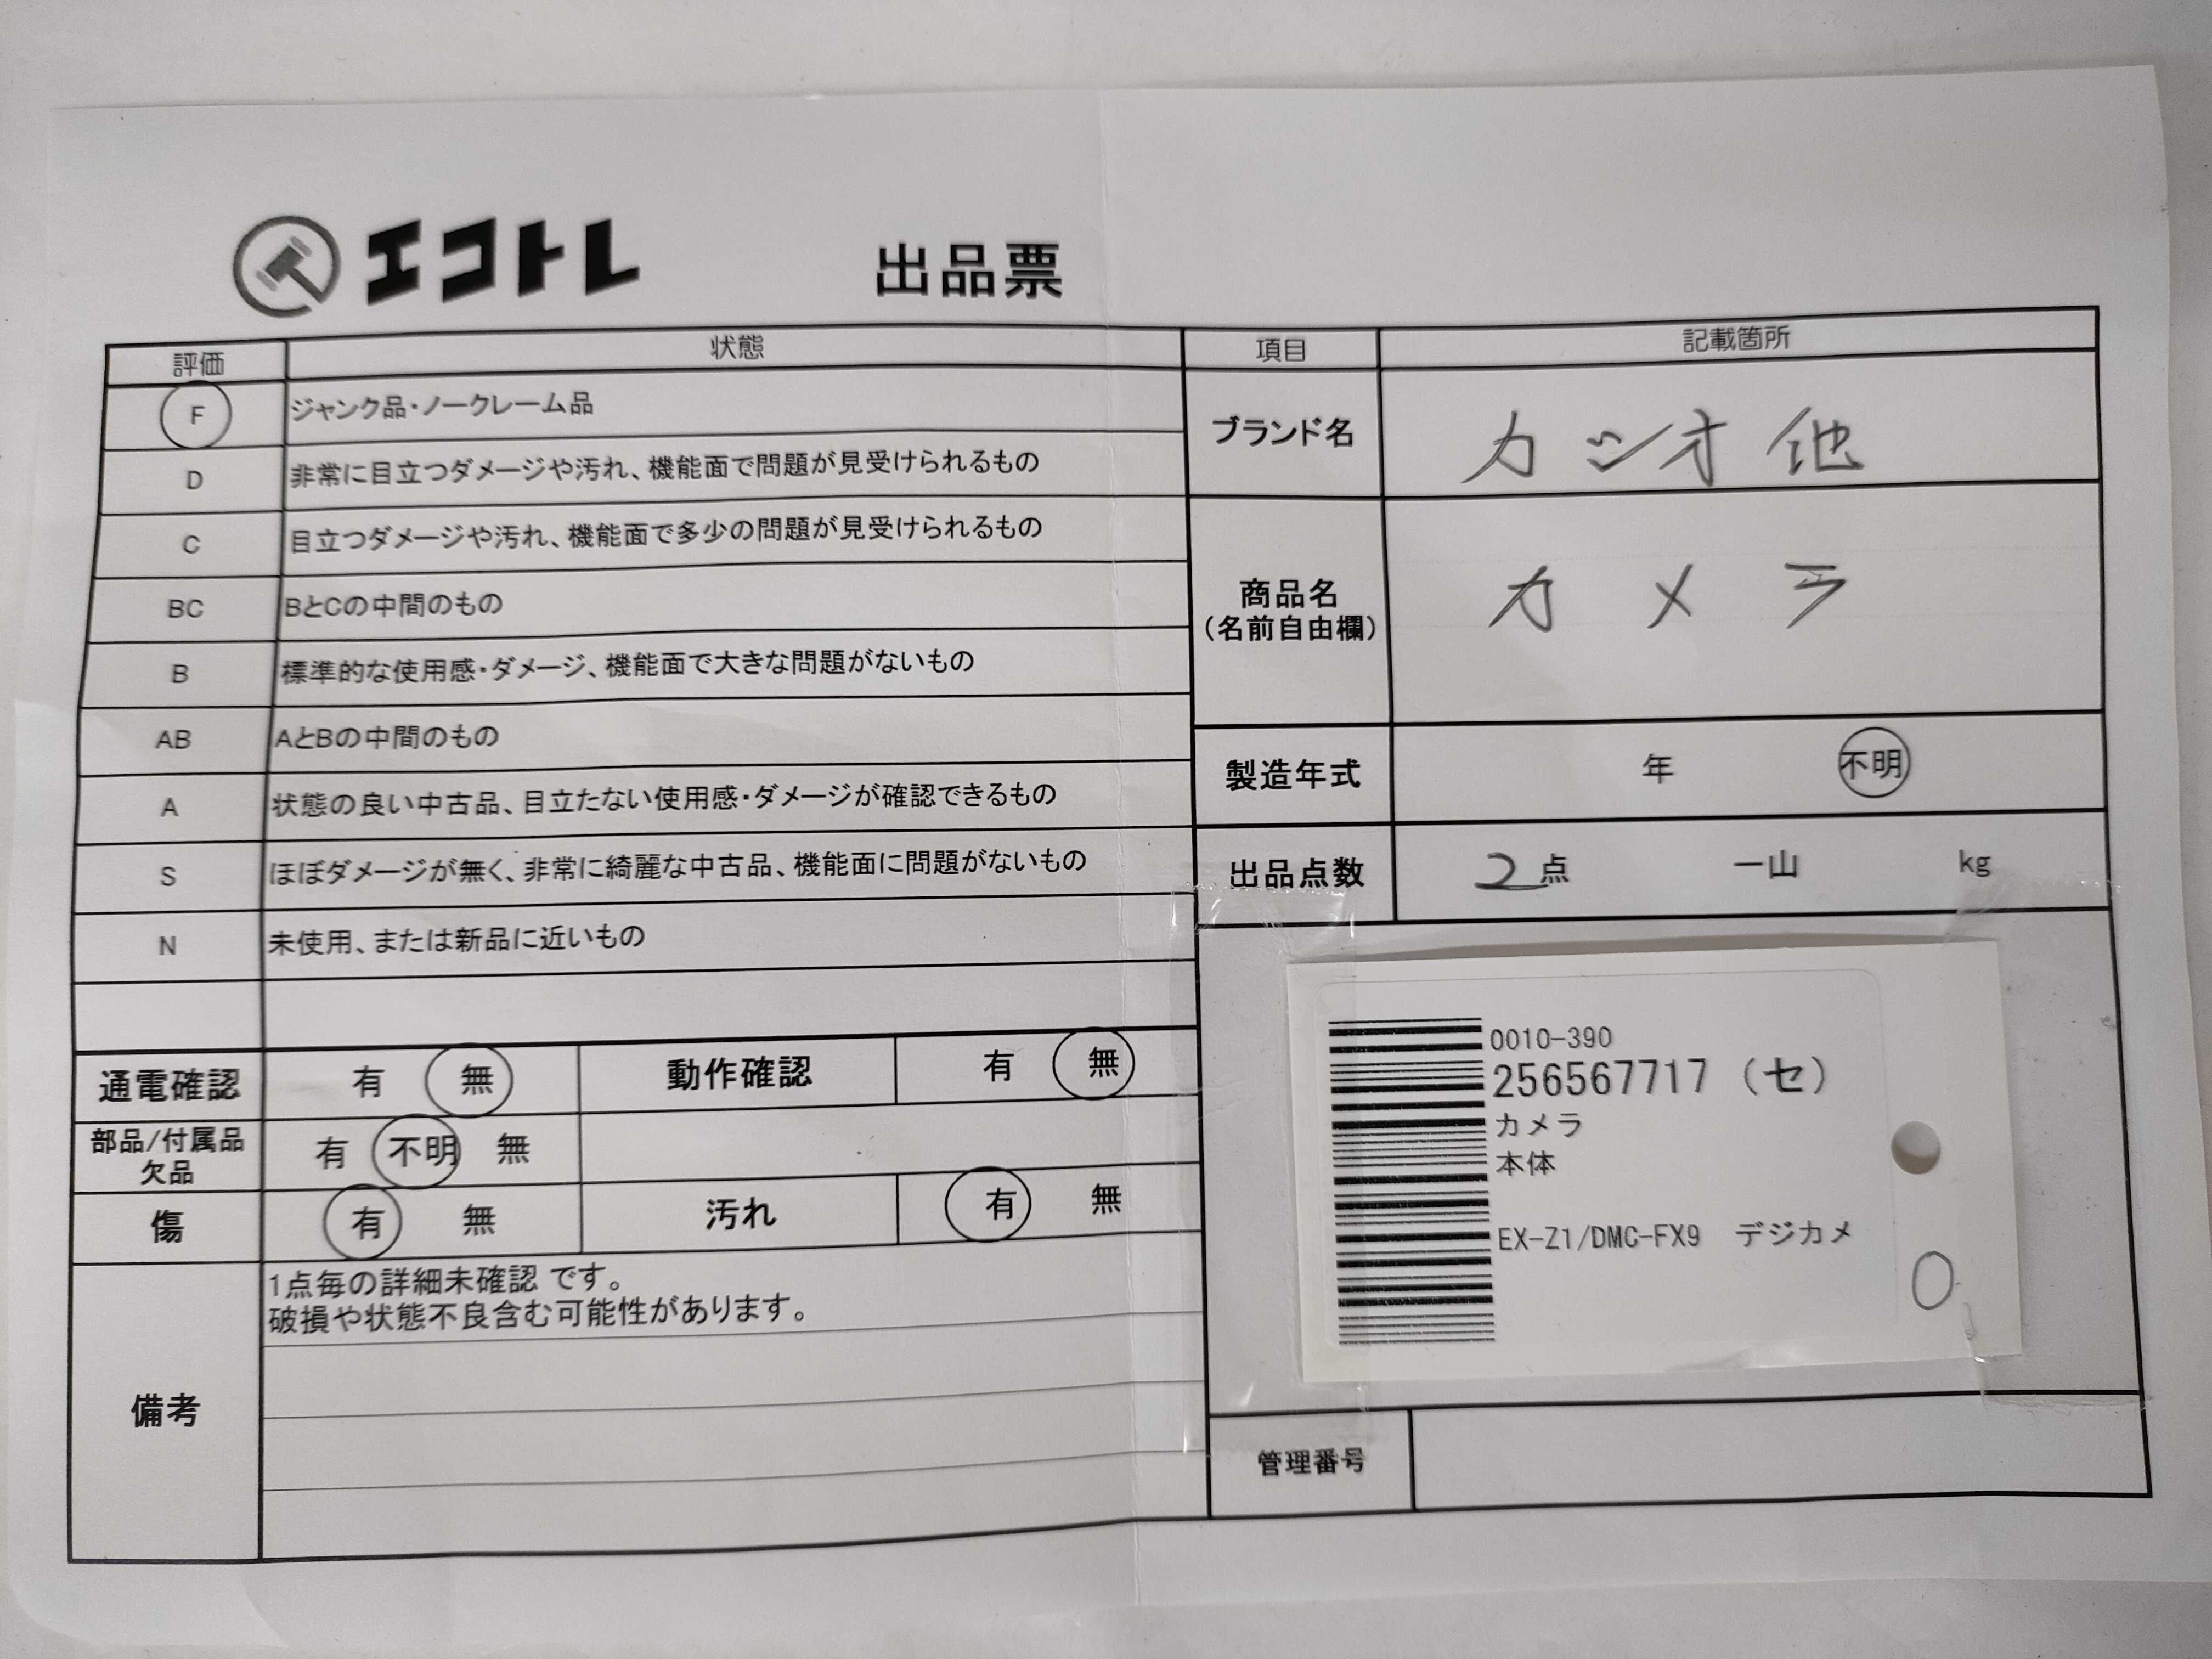 エコトレ 出品票
評価 状態
F ジャンク品・ノークレーム品
D 非常に目立つダメージや汚れ、機能面で問題が見受けられるもの
C 目立つダメージや汚れ、機能面で多少の問題が見受けられるもの
BC BとCの中間のもの
B 標準的な使用感・ダメージ、機能面で大きな問題がないもの
AB AとBの中間のもの
A 状態の良い中古品、目立たない使用感・ダメージが確認できるもの
S ほぼダメージが無く、非常に綺麗な中古品、機能面に問題がないもの
N 未使用、または新品に近いもの
通電確認 有 無 動作確認 有 無
部品/付属品
欠品 有 不明 無
傷 有 無 汚れ 有 無
備考
1点毎の詳細未確認 です。
破損や状態不良含む可能性があります。
項目 記載箇所
ブランド名 カシオ他
商品名
(名前自由欄) カメラ
製造年式 年 不明
出品点数 2点 一山 kg
0010-390
256567717 (セ)
カメラ
本体
EX-Z1/DMC-FX9 デジカメ
0
管理番号